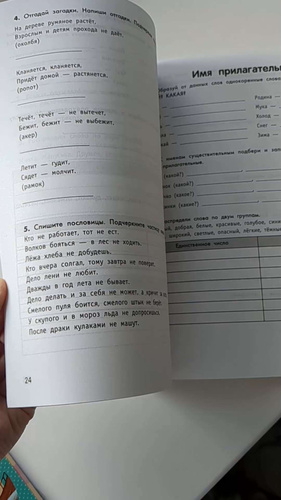 4. Отгадай загадки. Напиши отгадки.
На дереве румяное растёт,
Взрослым и детям прохода не даёт.
(околбя)
Кланяется, кланяется,
Придёт домой — растянется.
(ропот)
Течёт, течёт — не вытечет,
Бежит, бежит — не выбежит.
(акер)
Летит — гудит,
Сядет — молчит.
(рамок)
5. Спишите пословицы. Подчеркните
Кто не работает, тот не ест.
Волков бояться — в лес не ходить.
Лёжа хлеба не добудешь.
Кто вчера солгал, тому завтра не поверят.
Дело лени не любит.
Дважды в год лета не бывает.
Дело делать и за себя не может, а кричит
Смелого пуля боится, смелого штык не берёт.
У скупого и в мороз льда не допросишься.
После драки кулаками не машут.
24
Имя прилагательн
от данных слов однокоренные слов
КАКАЯ?
Родина —
Жука —
Холод —
Снег —
Зима —
именам существительным подбери и запи
(какой?)
(какая?)
(какое?)
(какие?)
слова по двум группам.
белые, красивые, голубое, сине
широкий, светлые, опасный, лёгкие, тёмны
Единственное число